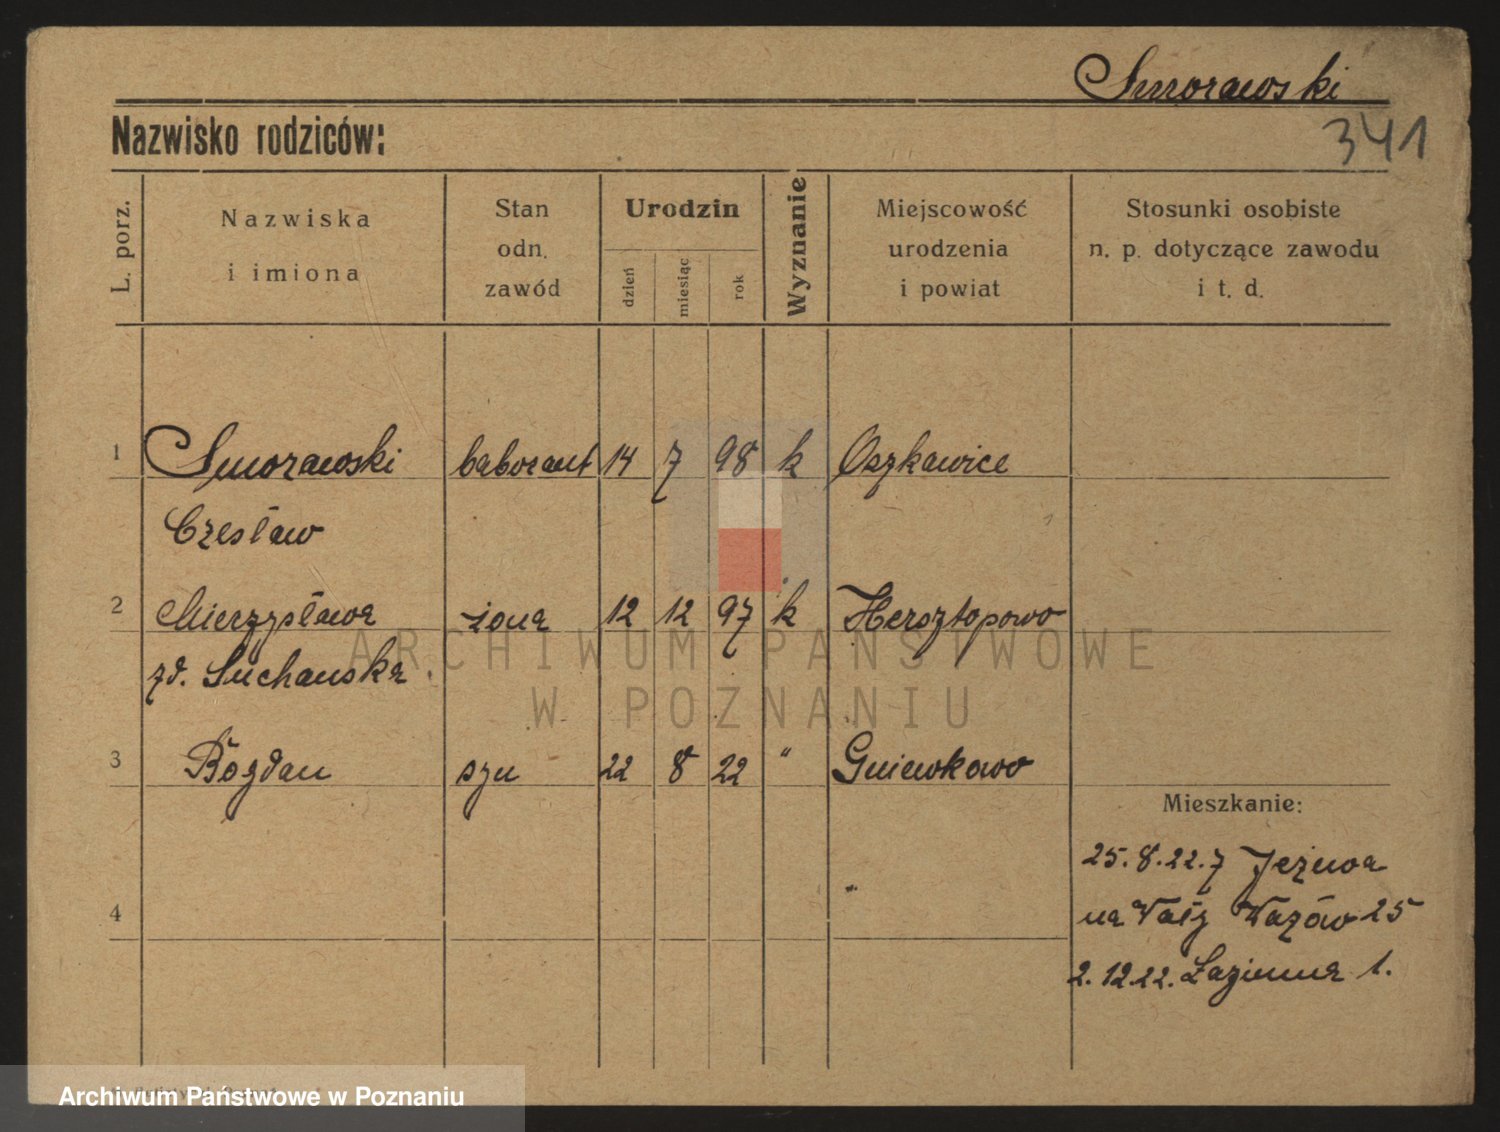 Smorawski
341
Nazwisko rodziców:
L. porz.
Nazwiska
i imiona
Stan
odn.
zawód
Urodzin
dzień
miesiąc
rok
Wyznanie
Miejscowość
urodzenia
i powiat
Stosunki osobiste
n. p. dotyczące zawodu
i t. d.
1 Smorawski laborant 14 7 98 k Oszkawice
Czesław
2 Mieczysława żona 12 12 97 k Hersztopowo
zd. Suchanska
3 Bogdan syn 22 8 22 " Gniewkowo
Mieszkanie:
25.8.22. z Jezuva
na Wały Wazów 25
4 "
2.12.22. Łazienna 1.
ARCHIWUM PAŃSTWOWE
W POZNANIU
Archiwum Państwowe w Poznaniu